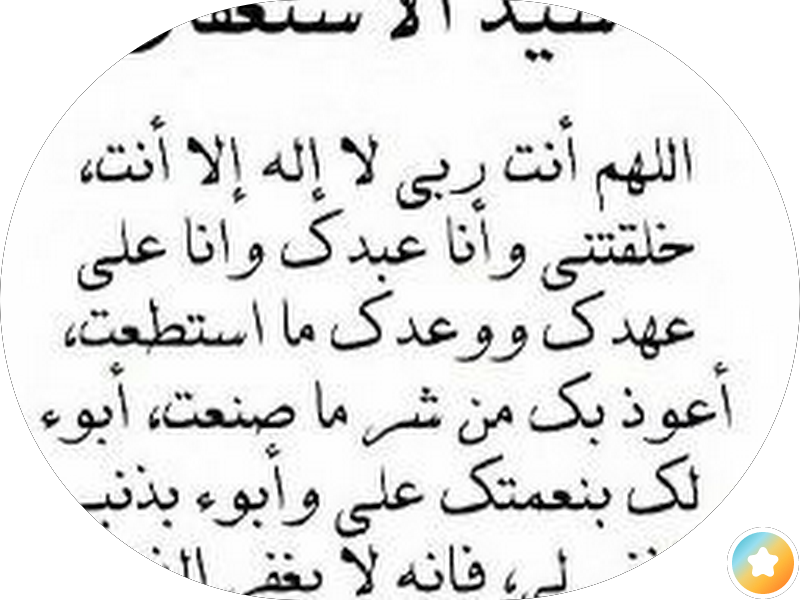 سيد الاستغفار
اللهم أنت ربى لا إله إلا أنت،
خلقتنى وأنا عبدك وانا على
عهدك ووعدك ما استطعت،
أعوذ بك من شر ما صنعت، أبوء
لك بنعمتك على وأبوء بذنب
لى، فانه لا يغفر